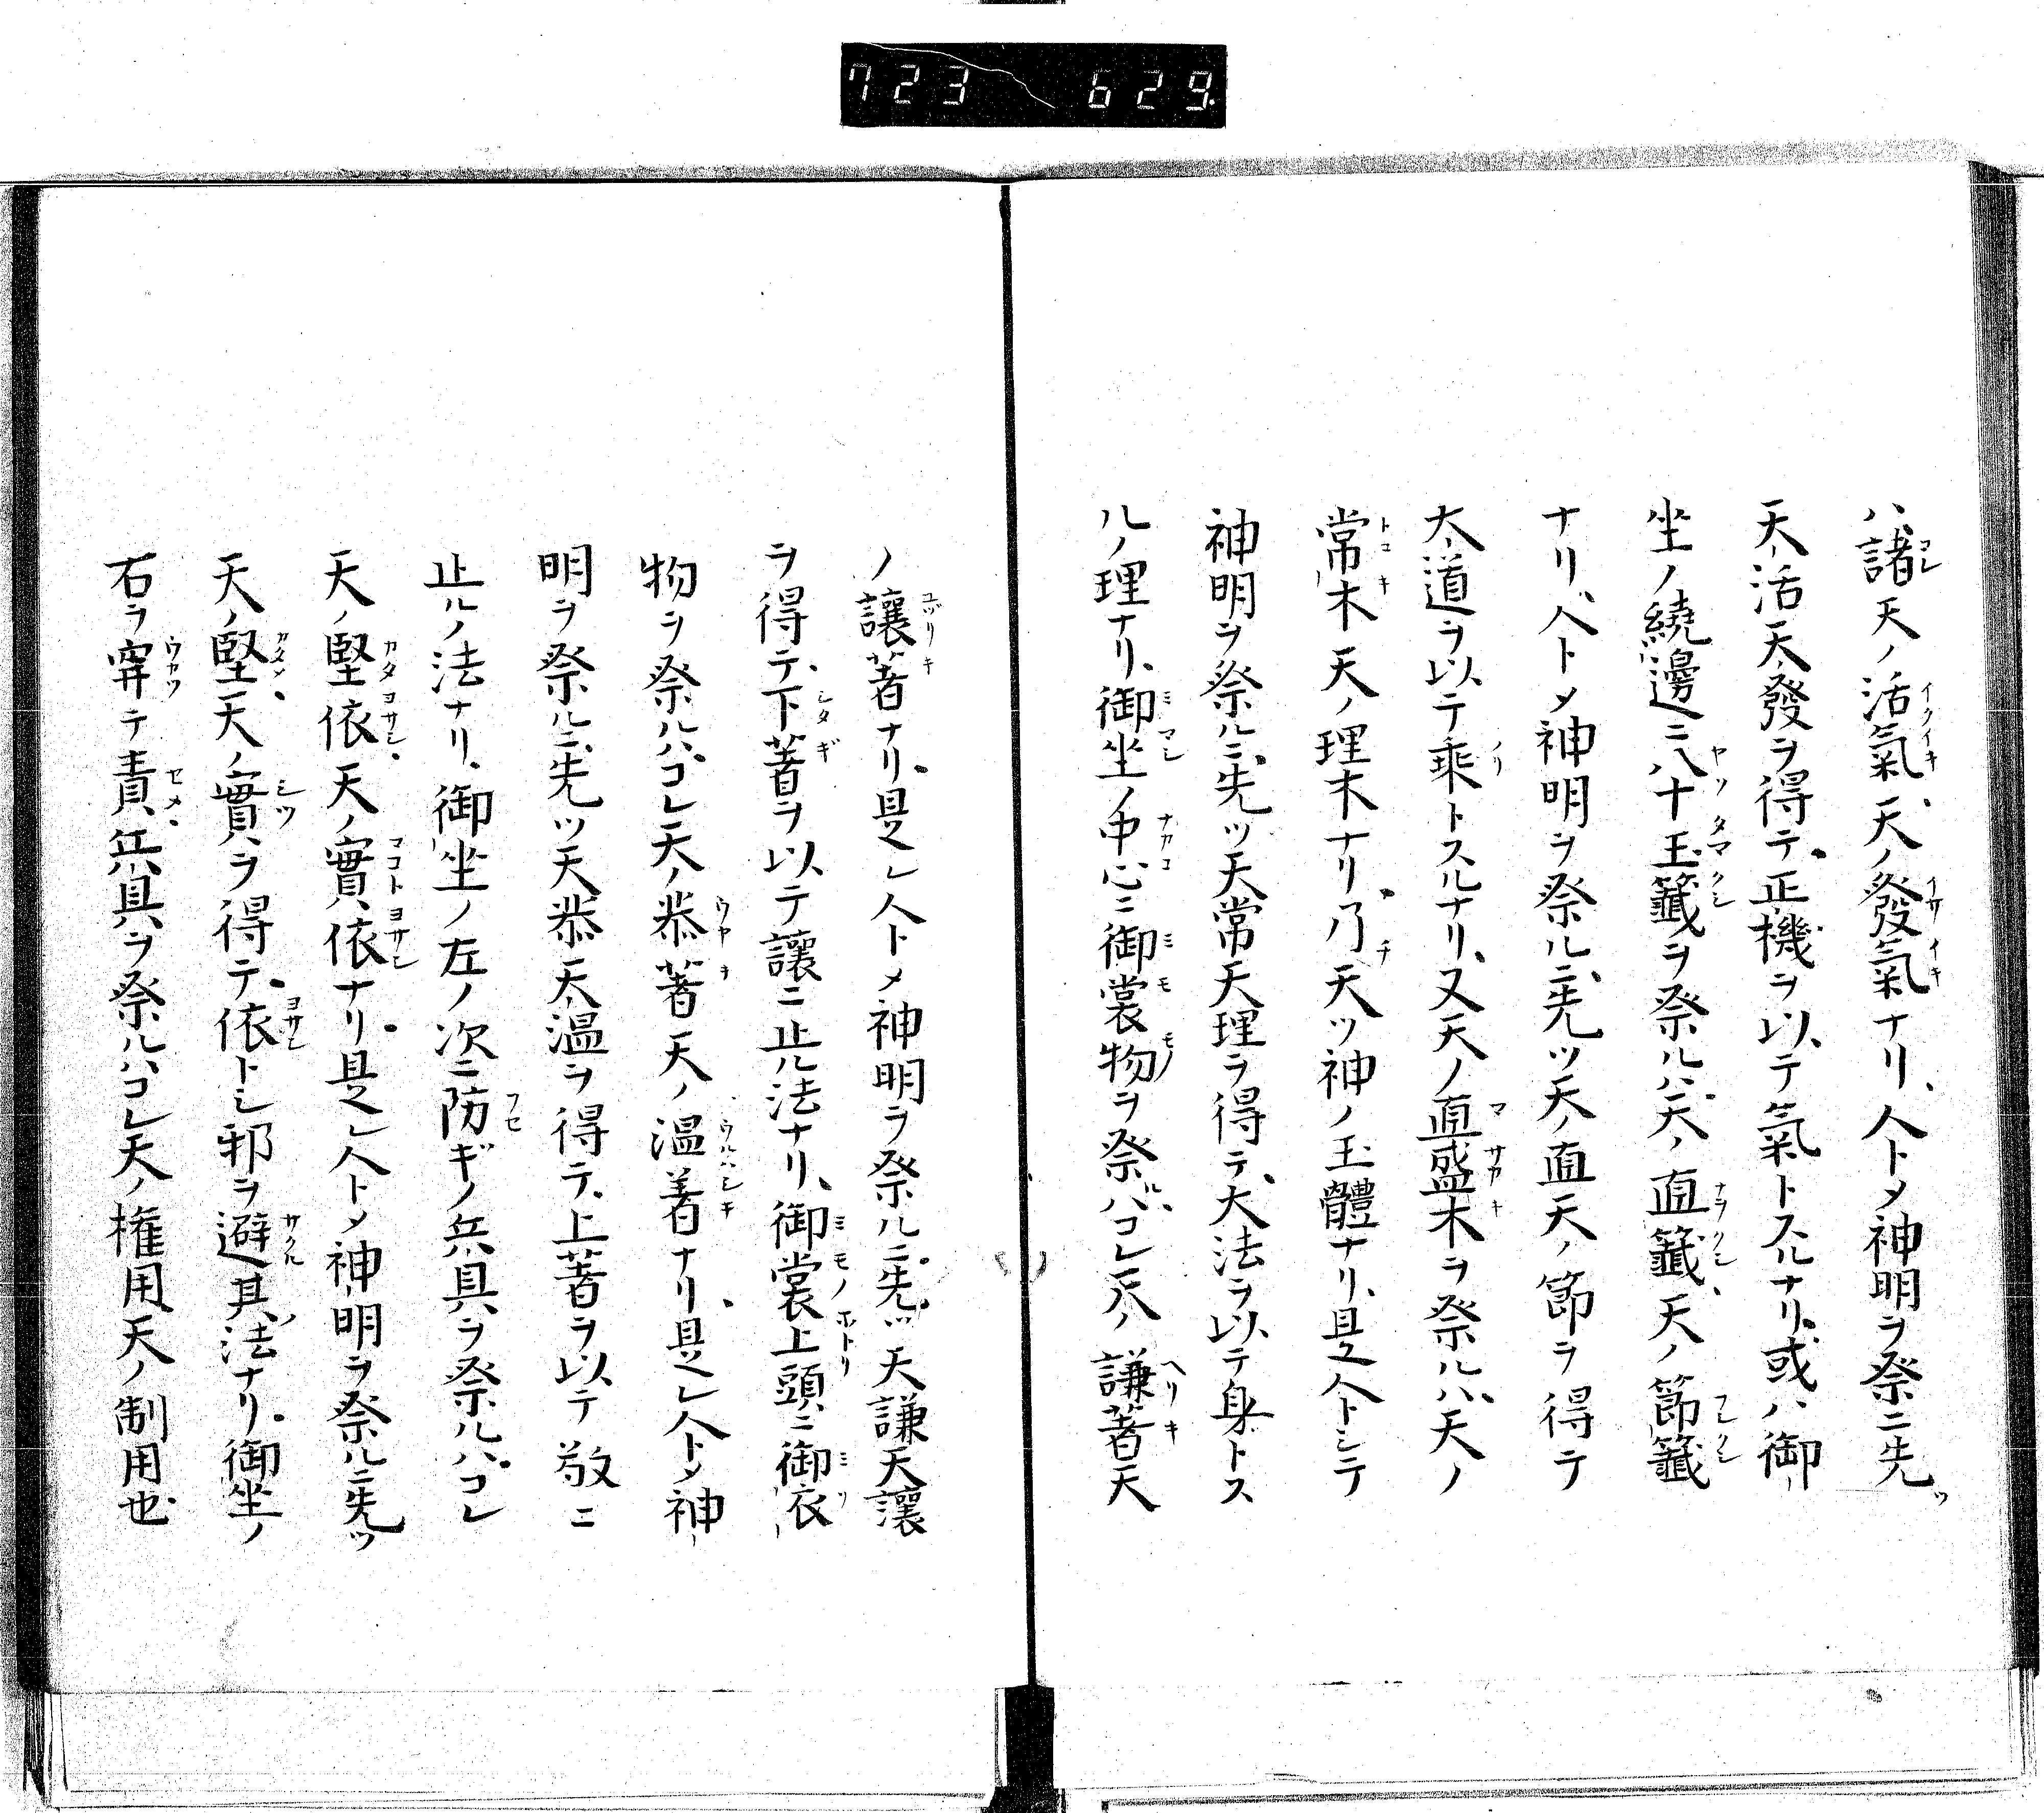 723 629
ハ諸天ノ活氣、天ノ發氣ナリ、人トメ神明ヲ祭ニ先ッ
天ノ活天ノ發ヲ得テ、正機ヲ以テ氣トスルナリ、或ハ御
坐ノ繞邊ニ八十玉籤ヲ祭ルハ、天ノ直籤、天ノ節籤
ナリ、人トメ神明ヲ祭ルニ、先ッ天ノ直天ノ節ヲ得テ
大道ヲ以テ乘トスルナリ、又天ノ直盛木ヲ祭ルハ、天ノ
常木天ノ理木ナリ、乃チ天ツ神ノ玉體ナリ、是人トシテ
神明ヲ祭ルニ、先ッ天常天理ヲ得テ、大法ヲ以テ身トス
ルノ理ナリ、御坐ノ中心ニ御裳物ヲ祭ルハ、コレ天ノ謙著天
ノ讓著ナリ、是レ人トメ神明ヲ祭ルニ、先ッ天謙天讓
ヲ得テ、下著ヲ以テ讓ニ止ル法ナリ、御裳上頭ニ御衣
物ヲ祭ルハ、コレ天ノ恭著天ノ温著ナリ、是レ人トメ神
明ヲ祭ルニ、先ッ天恭天温ヲ得テ、上著ヲ以テ敬ニ
止ルノ法ナリ、御坐ノ左ノ次ニ防ギノ兵具ヲ祭ルハ、コレ
天ノ堅依天ノ實依ナリ、是レ人トメ神明ヲ祭ルニ先ッ
天ノ堅天ノ實ヲ得テ、依トシ邪ヲ避其法ナリ、御坐ノ
右ヲ穿テ責、兵具ヲ祭ルハ、コレ天ノ権用天ノ制用也